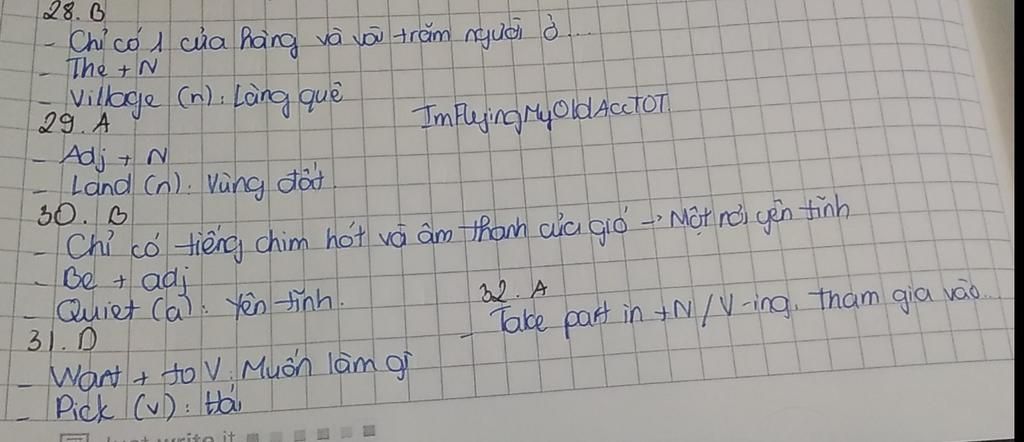 28. B
- Chỉ có 1 cửa hàng và vài trăm người ở...
- The + N
- Village (n): Làng quê
29. A
ImFlyingMyOldAccTOT
- Adj + N
- Land (n): Vùng đất
30. B
- Chỉ có tiếng chim hót và âm thanh của gió → Một nơi yên tĩnh
- Be + adj
- Quiet (a): Yên tĩnh.
31. D
32. A
- Take part in +N/V-ing: tham gia vào...
- Want + to V: Muốn làm gì
- Pick (v): Hái
Just write it